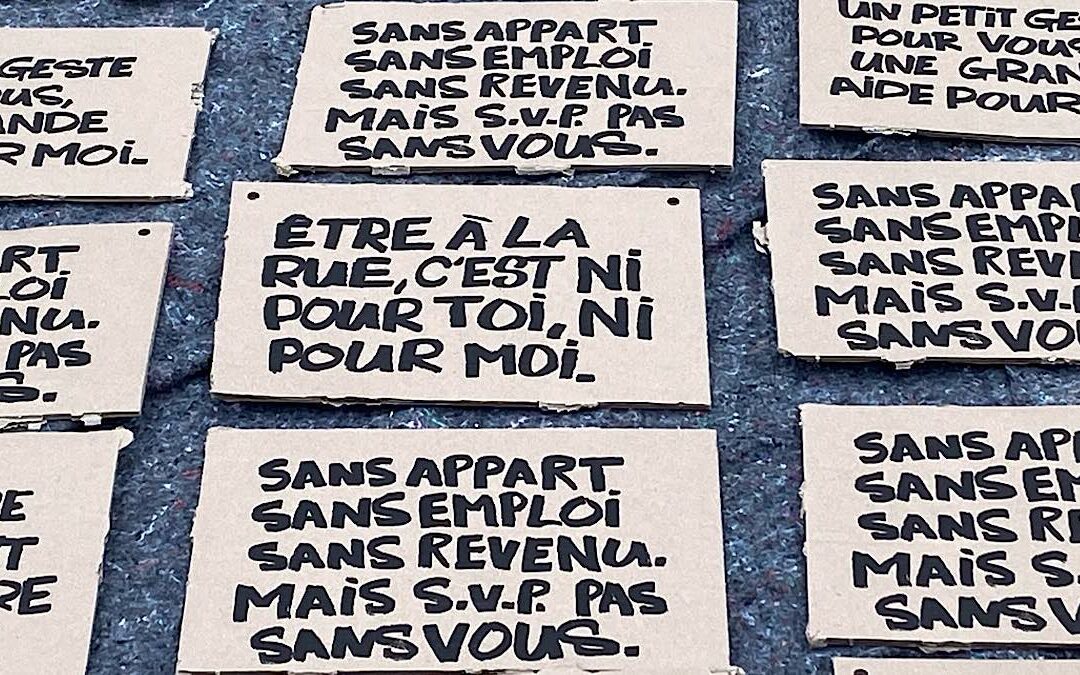 GESTE
ANDE
MOI.
SANS APPART
SANS EMPLOI
SANS REVENU.
MAIS S.V.P. PAS
SANS VOUS.
UN PETIT
POUR VOUS
UNE
AIDE POUR
PAS
ÊTRE À LA
RUE, C'EST NI
POUR TOI, NI
POUR MOI.
SANS
SANS
SANS
MAIS S.V.P.
SANS
SANS APPART
SANS EMPLOI
SANS REVENU.
MAIS S.V.P. PAS
SANS VOUS.
SANS
SANS
SANS
MAIS
SANS